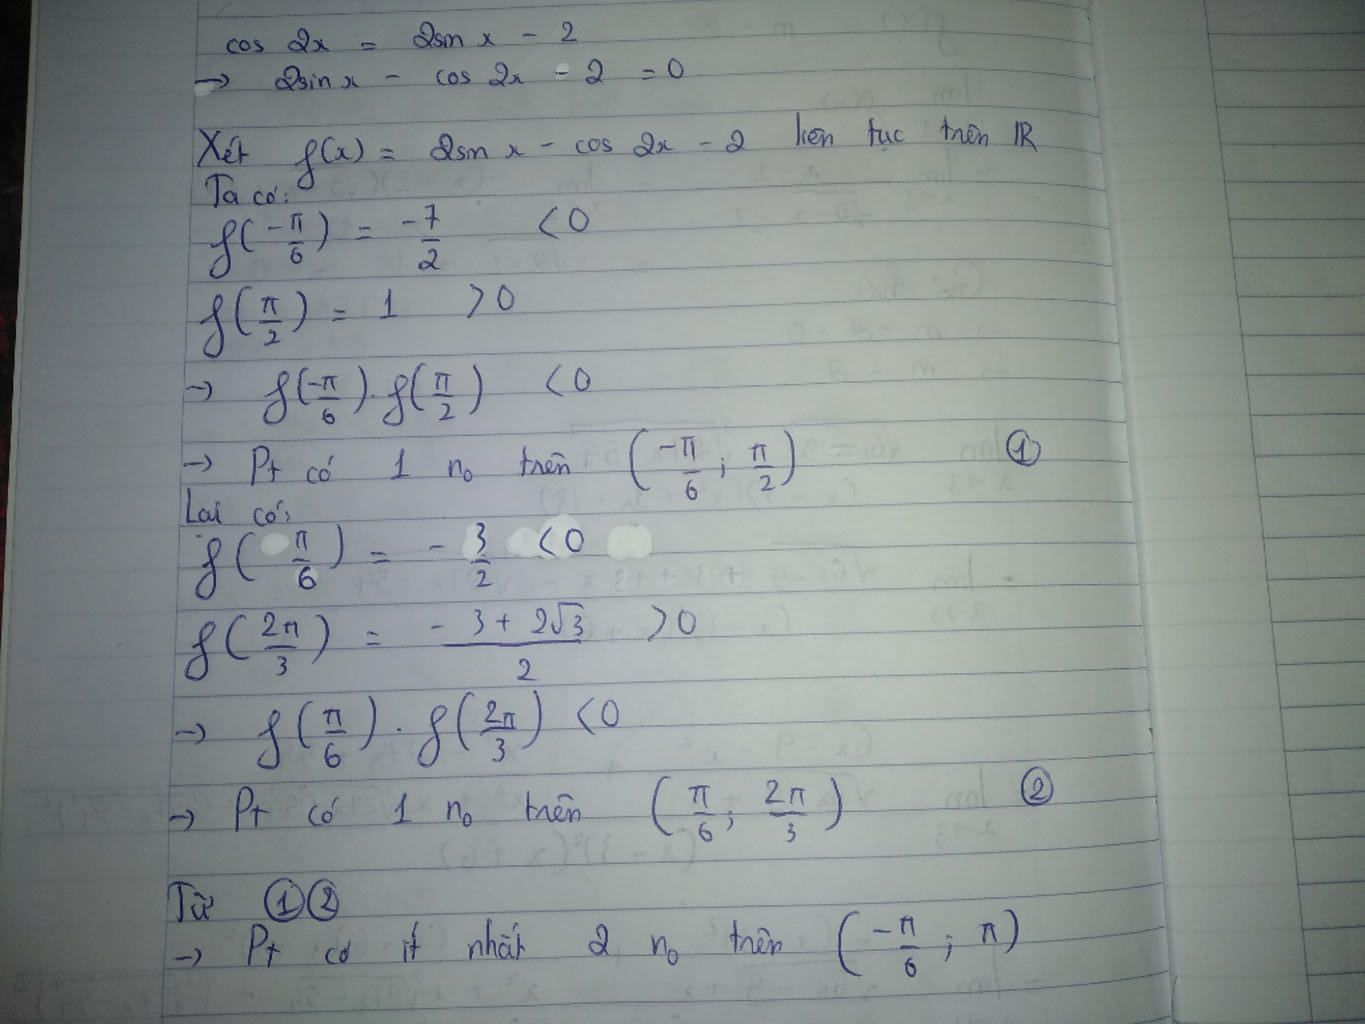 cos 2x = 2sin x - 2
→ 2sin x - cos 2x - 2 = 0
Xét f(x) = 2sin x - cos 2x - 2 liên tục trên ℝ
Ta có:
f(-π/6) = -7/2 < 0
f(π/2) = 1 > 0
→ f(-π/6) . f(π/2) < 0
→ Pt có 1 n₀ trên (-π/6 ; π/2) ①
Lại có:
f(π/6) = - 3/2 < 0
f(2π/3) = (- 3 + 2√3)/2 > 0
→ f(π/6) . f(2π/3) < 0
→ Pt có 1 n₀ trên (π/6 ; 2π/3) ②
Từ ① ②
→ Pt có ít nhất 2 n₀ trên (-π/6 ; π)